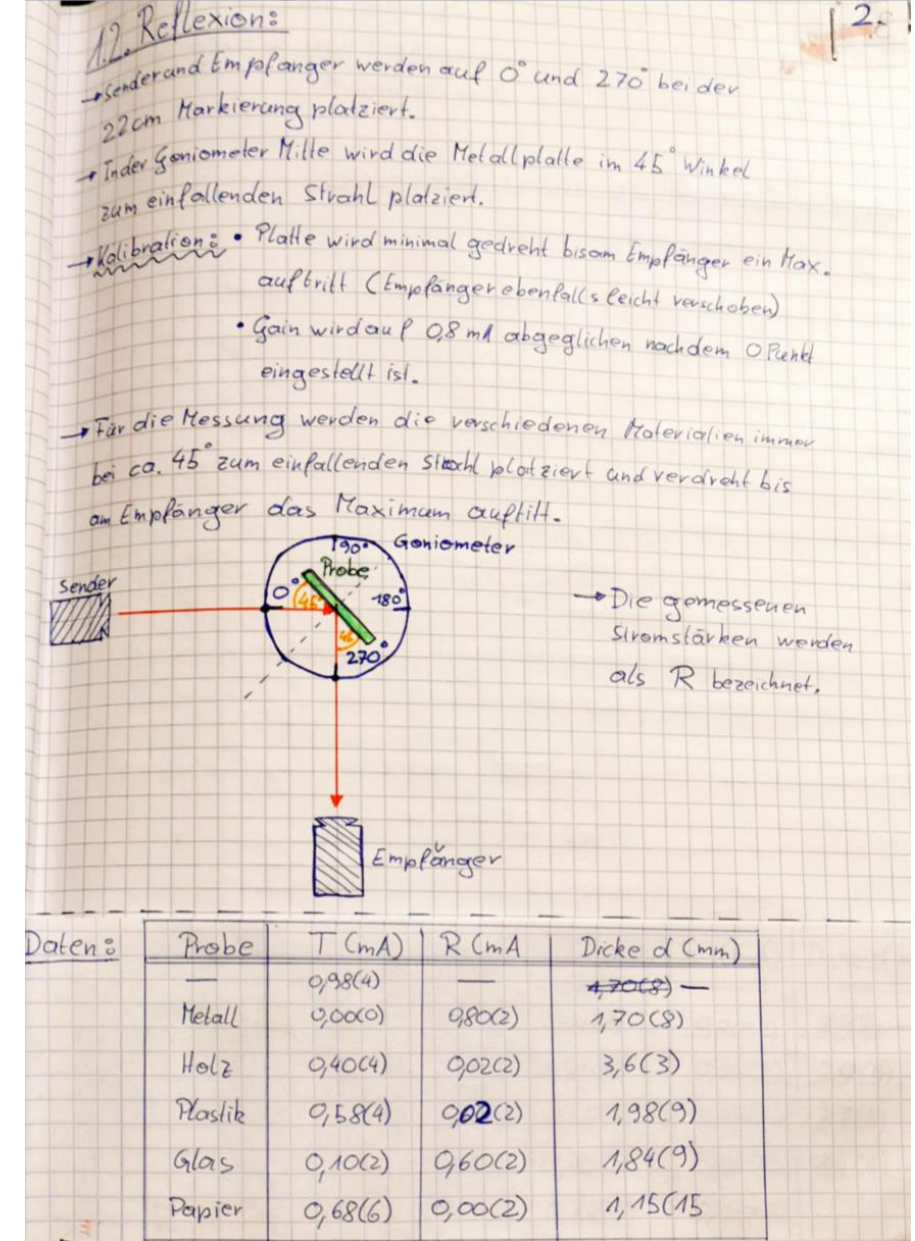 1.2. Reflexion:
2.
→ Sender und Empfänger werden auf 0° und 270° bei der
22cm Markierung platziert.
→ In der Goniometer Mitte wird die Metallplatte im 45° Winkel
zum einfallenden Strahl platziert.
→ Kalibration: • Platte wird minimal gedreht bis am Empfänger ein Max.
auftritt (Empfänger ebenfalls leicht verschoben)
• Gain wird auf 0,8 mA abgeglichen nachdem 0 Punkt
eingestellt ist.
→ Für die Messung werden die verschiedenen Materialien immer
bei ca. 45° zum einfallenden Strahl platziert und verdreht bis
am Empfänger das Maximum auftitt.
90° Goniometer
Sender 0° Probe 180°
45°
45°
270°
→ Die gemessenen
Stromstärken werden
als R bezeichnet.
Empfänger
Daten: Probe T (mA) R (mA Dicke d (mm)
— 0,98(4) — 1,70(8) —
Metall 0,00(0) 0,80(2) 1,70(8)
Holz 0,40(4) 0,02(2) 3,6(3)
Plastik 0,58(4) 0,02(2) 1,98(9)
Glas 0,10(2) 0,60(2) 1,84(9)
Papier 0,68(6) 0,00(2) 1,15(15